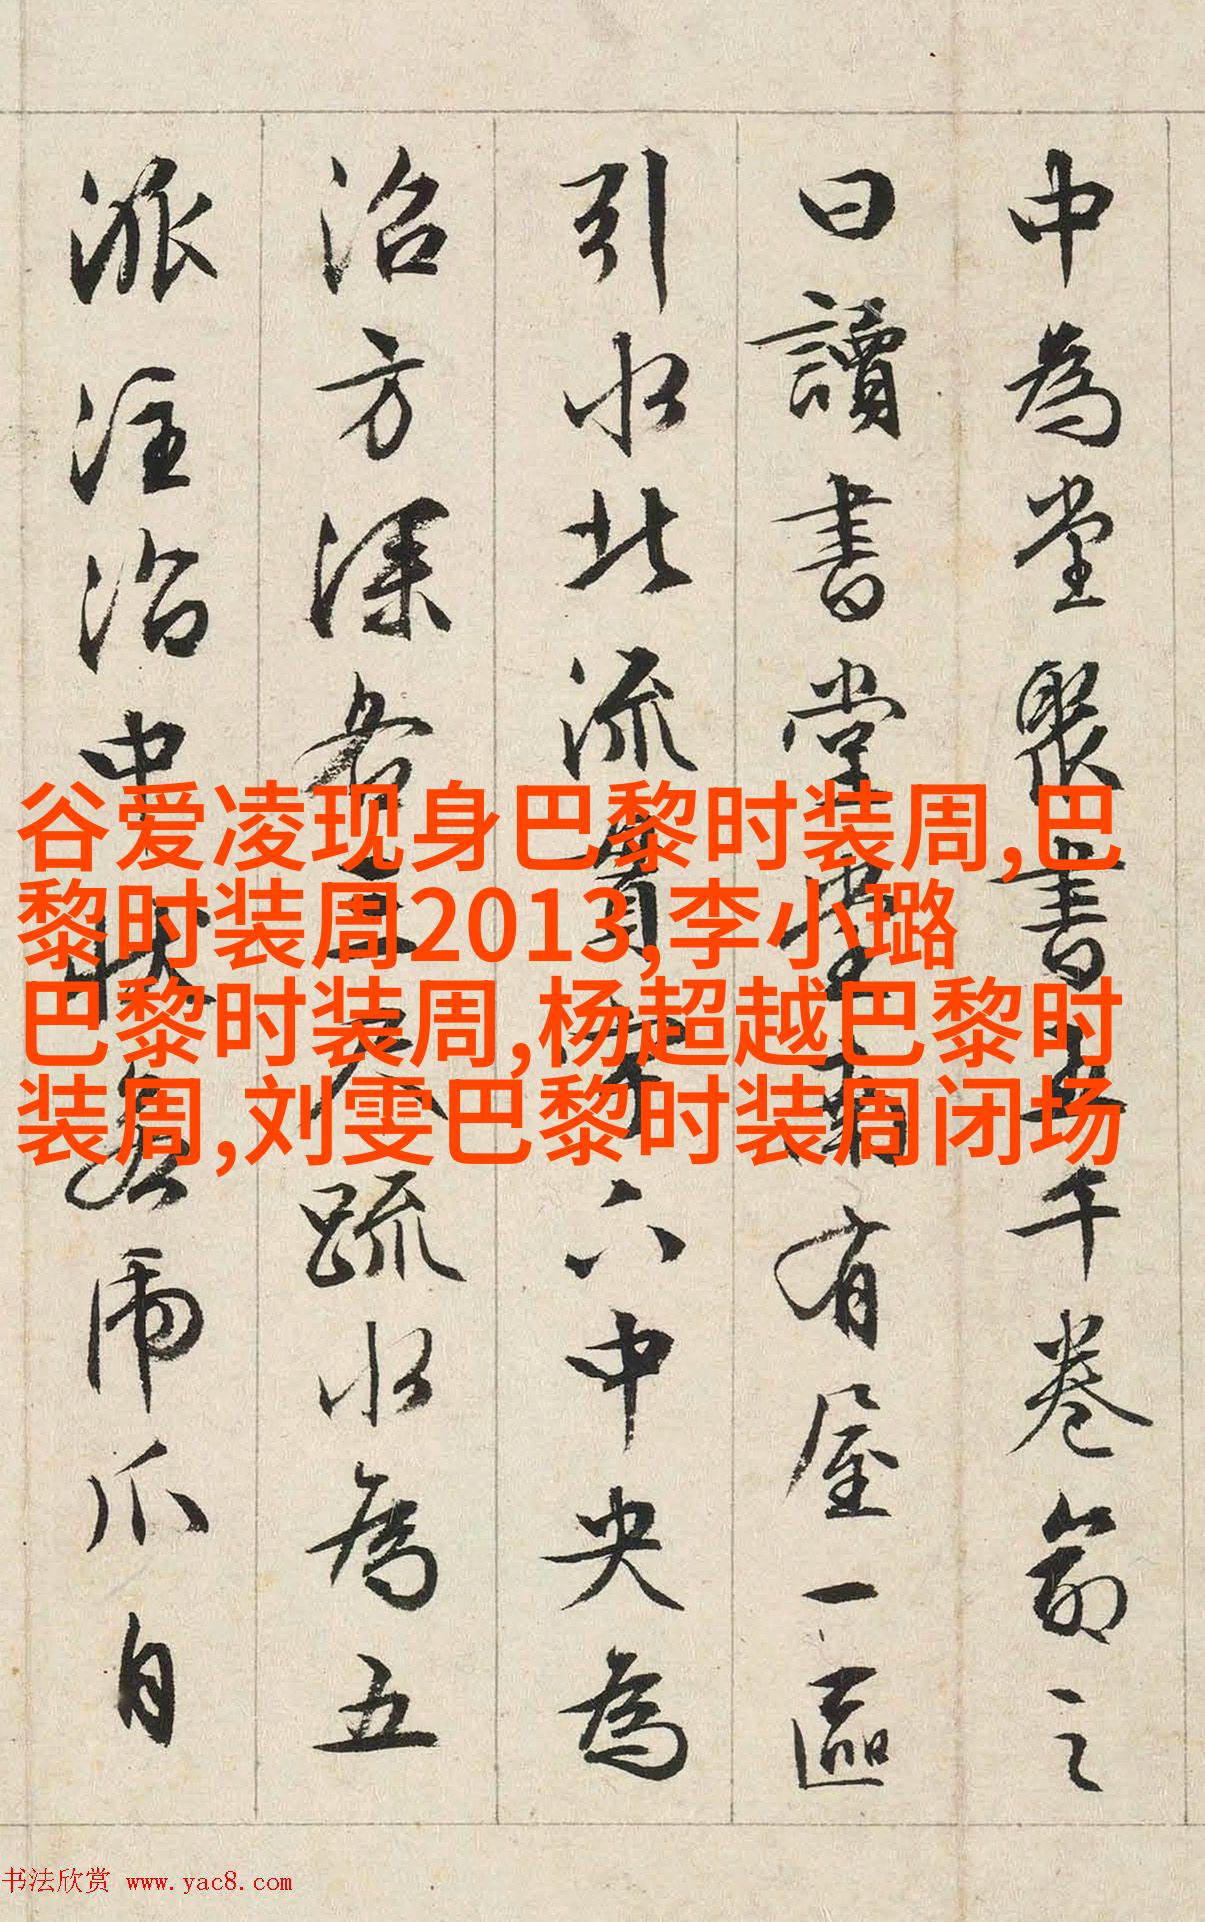 中為堂聚書五千卷命之
曰讀書堂堂南有屋一區
引水北流貫宇下中央為
沼方深各三尺疏水為五
派注沼中狀若虎爪自
谷爱凌现身巴黎时装周,巴
黎时装周2013,李小璐
巴黎时装周,杨超越巴黎时
装周,刘雯巴黎时装周闭场
书法欣赏 www.yac8.com